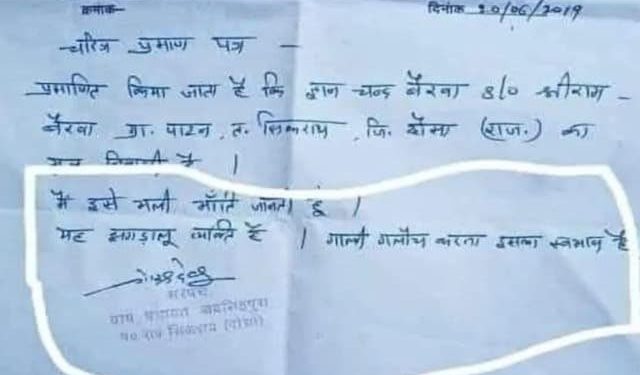 क्रमांक- दिनांक 20/06/2019
चरित्र प्रमाण पत्र -
प्रमाणित किया जाता है कि ज्ञान चन्द बैरवा S/o श्रीराम -
बैरवा ग्रा. पाटन, त. सिकराय, जि. दौसा (राज.) का
मूल निवासी है ।
मै इसे भली भाँति जानता हूं ।
यह झगड़ालू व्यक्ति है । गाली गलौच करना इसका स्वभाव है
सरपंच
ग्राम पंचायत
पं०स० सिकराय (दौसा)